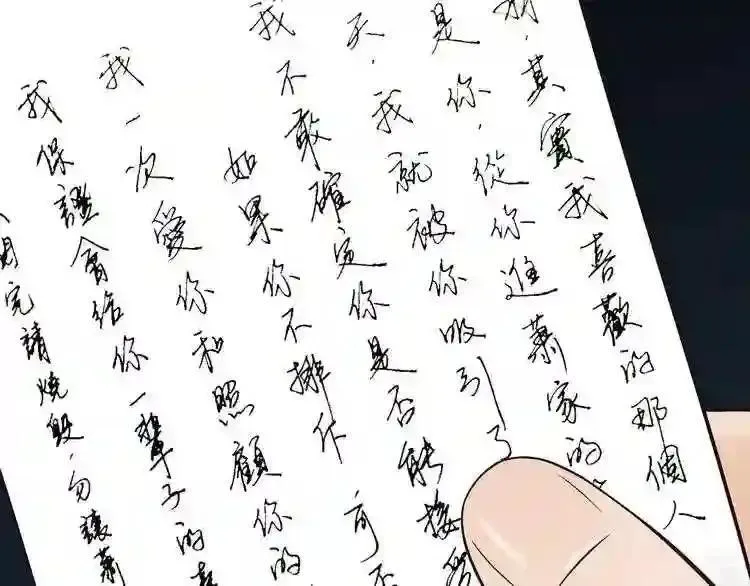 別，其實我喜歡的那個人
是你，從你進蕭家的
天，我就被你吸引了
我不敢確定你是否能接
如果你不排斥 可否
我一次愛你和照顧你的
我保證會給你一輩子的
完請燒毀，勿讓蕭